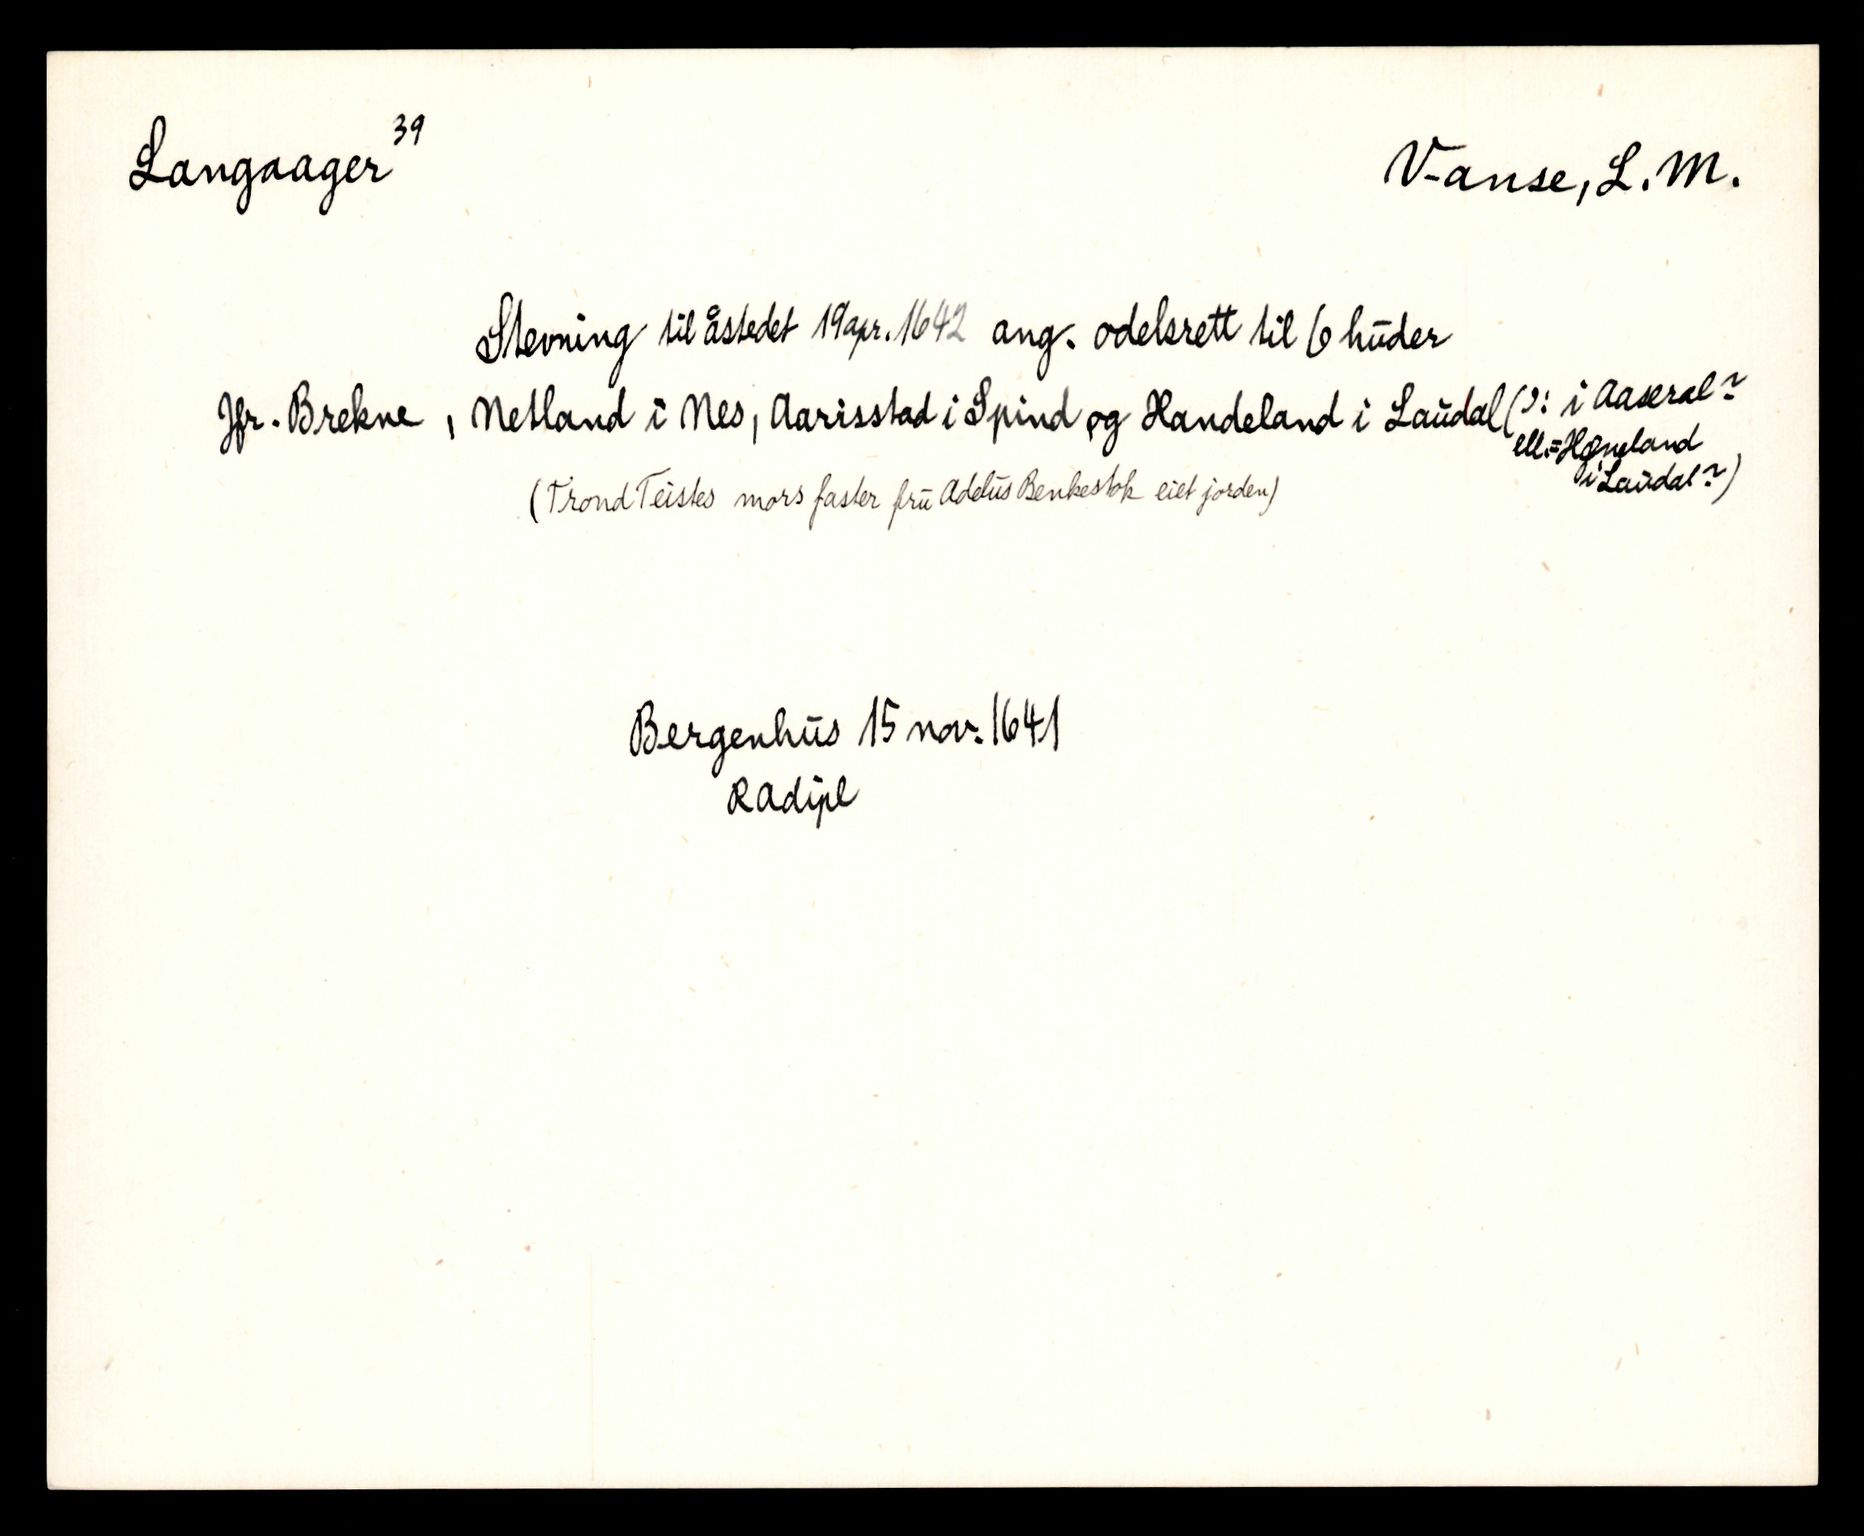 Langaager 39
Vanse, L. M.
Stevning til åstedet 19 apr. 1642 ang. odelsrett til 6 huder
Jfr. Brekne, Netland i Nes, Aarisstad i Spind og Handeland i Laudal (ɔ: i Aaseral?
ell. = Høneland
i Laudal?)
(Trond Teistes mors faster fru Adelus Benkestok eiet jorden)
Bergenhus 15 nov. 1641
RAdipl